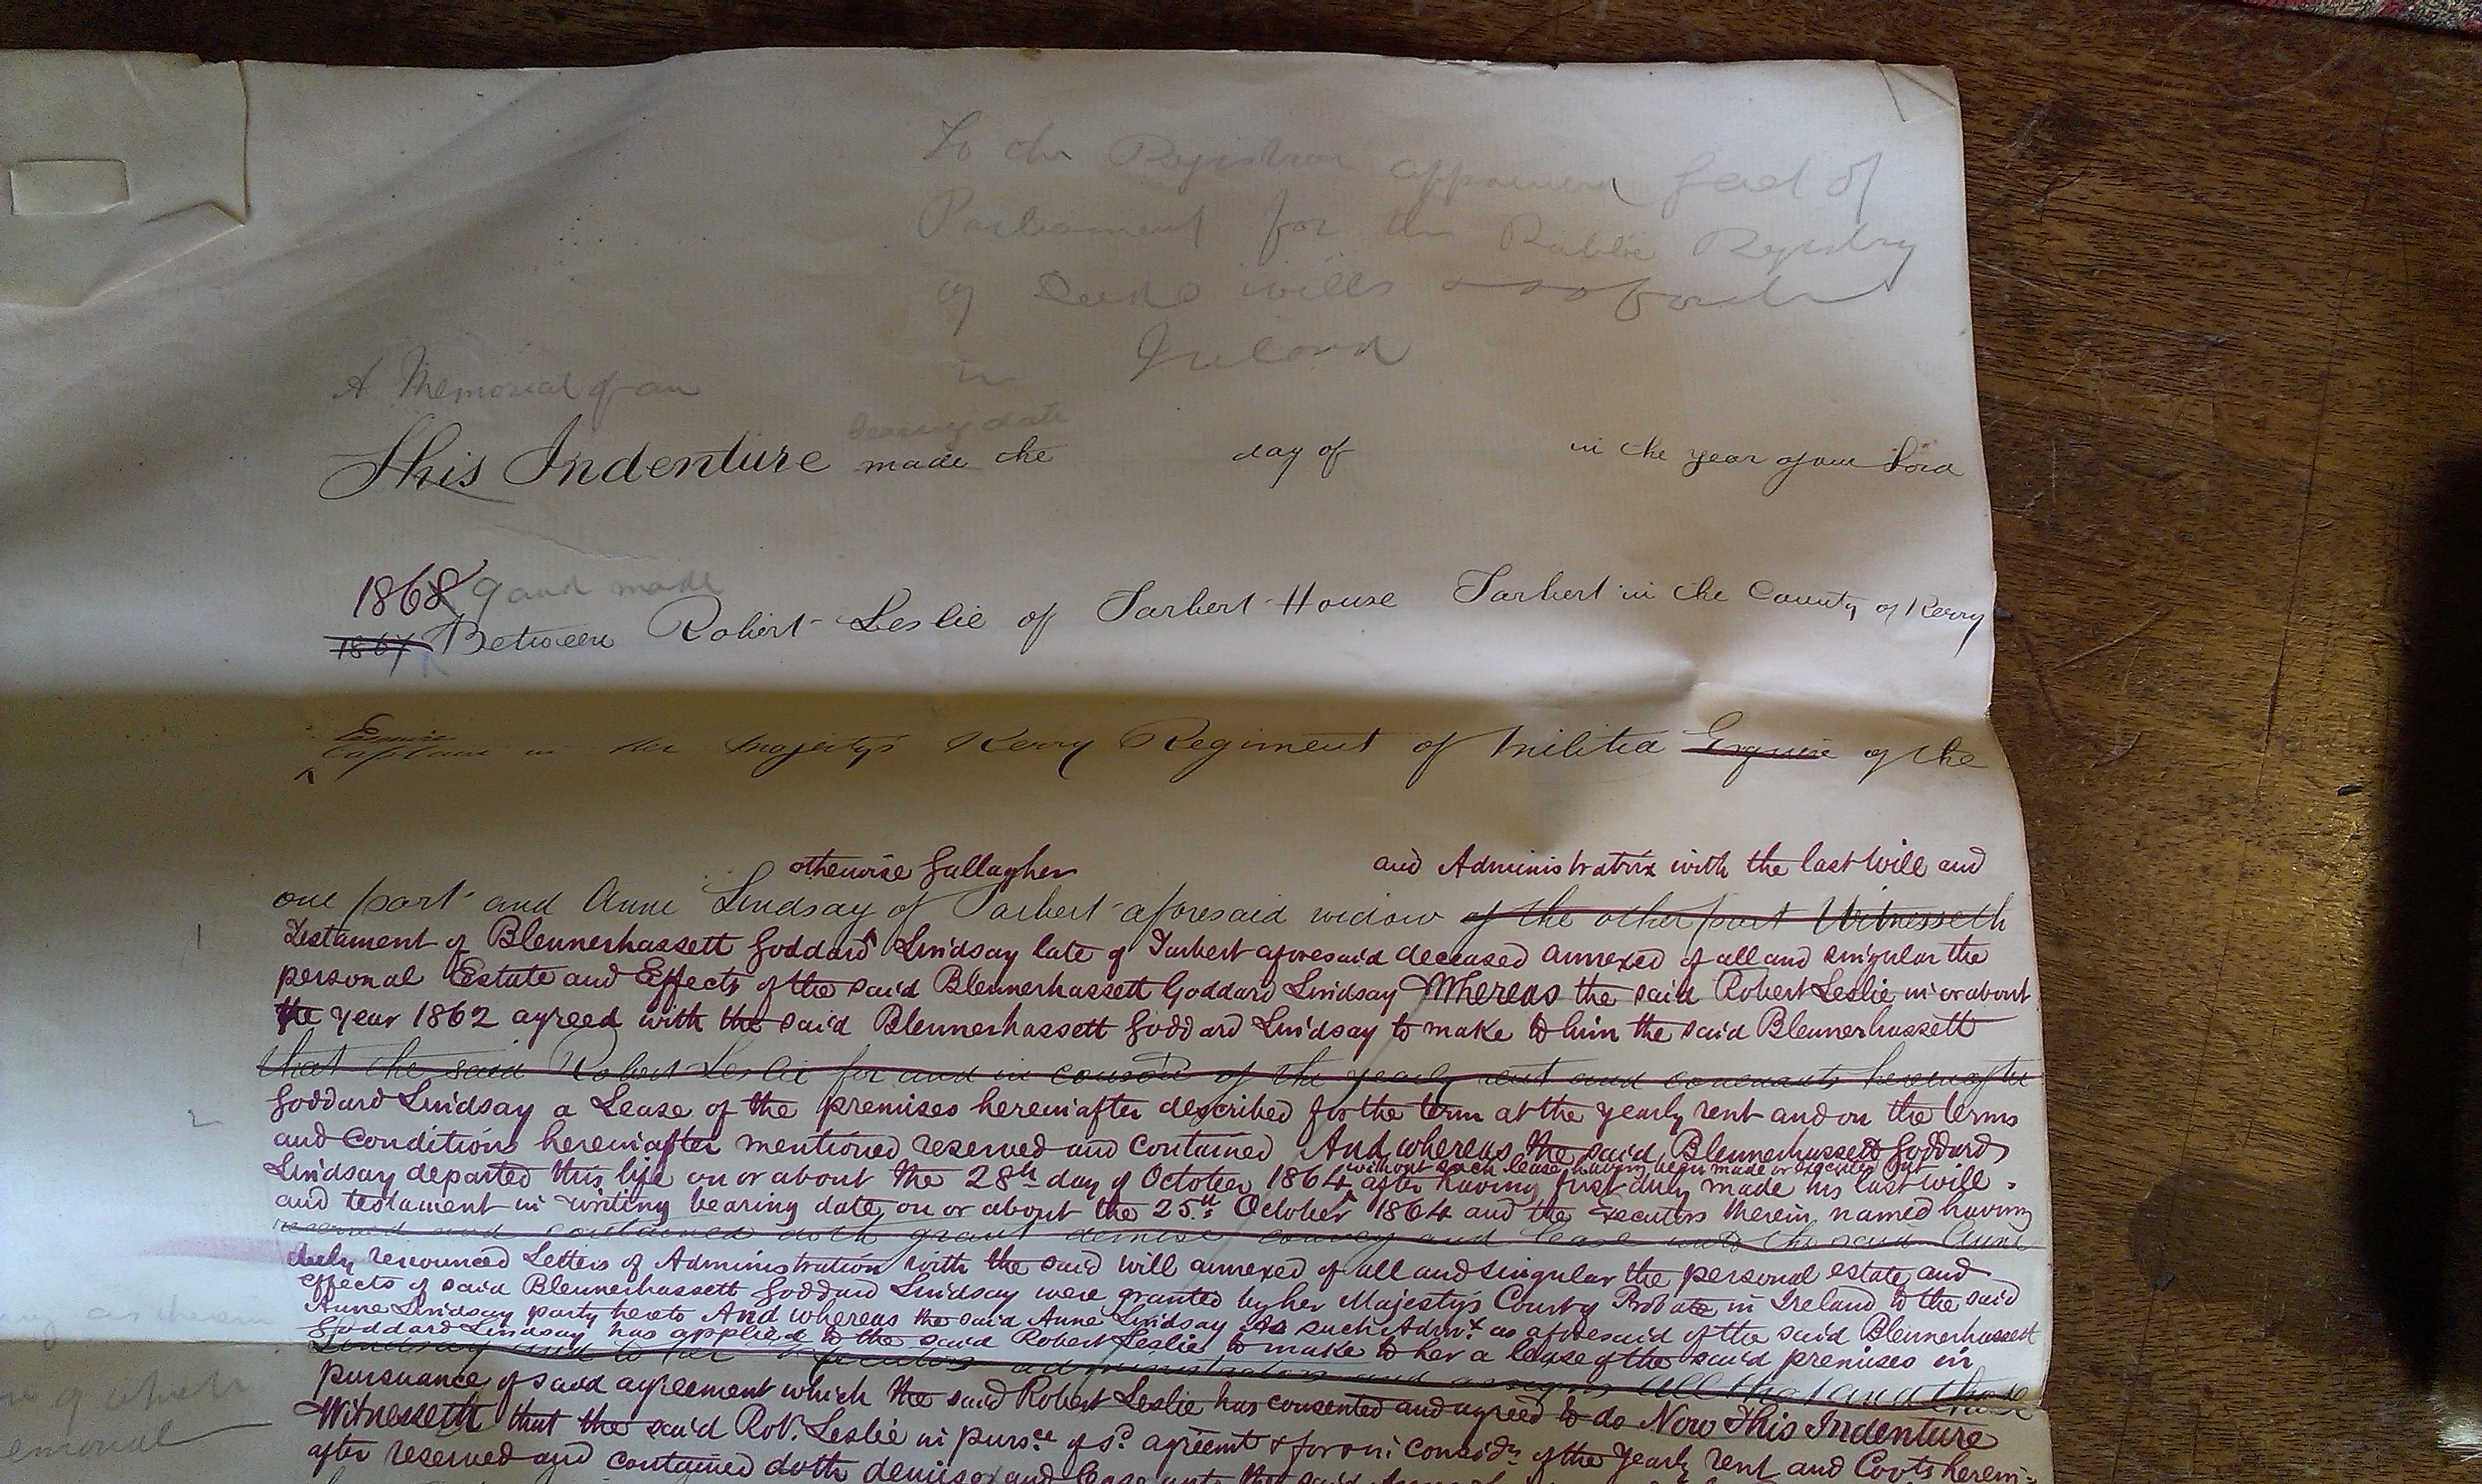 To the Registrar appointed by act of
Parliament for the Public Registry
of Deeds wills & so forth
in Ireland
A Memorial of an
bearing date
This Indenture made the day of in the year of our Lord
1868 9 and made
1867 Between Robert Leslie of Tarbert House Tarbert in the County of Kerry
Esquire
Captain in Her Majestys Kerry Regiment of Militia Esquire of the
otherwise Gallagher and Administratrix with the last Will and
one part and Anne Lindsay of Tarbert aforesaid widow of the other part Witnesseth
Testament of Blennerhassett Goddard Lindsay late of Tarbert aforesaid deceased annexed of all and singular the
personal Estate and Effects of the said Blennerhassett Goddard Lindsay Whereas the said Robert Leslie in or about
the year 1862 agreed with the said Blennerhassett Goddard Lindsay to make to him the said Blennerhassett
that the said Robert Leslie for and in conson of the yearly rent and covenants hereinafter
Goddard Lindsay a Lease of the premises hereinafter described for the term at the yearly rent and on the terms
and conditions hereinafter mentioned reserved and contained And whereas the said Blennerhassett Goddard
without such lease having been made or executed but
Lindsay departed this life on or about the 28th day of October 1864 after having first duly made his last will
and testament in writing bearing date on or about the 25th October 1864 and the Executors therein named having
reserved and contained doth grant demise convey and lease unto the said Anne
duly renounced Letters of Administration with the said will annexed of all and singular the personal estate and
effects of said Blennerhassett Goddard Lindsay were granted by her Majesty's Court of Probate in Ireland to the said
Anne Lindsay party hereto And whereas the said Anne Lindsay as such Admx. as aforesaid of the said Blennerhassett
Goddard Lindsay has applied to the said Robert Leslie to make to her a lease of the said premises in
Lindsay and to her Executors administrators and assigns All that and those
pursuance of said agreement which the said Robert Leslie has consented and agreed to do Now This Indenture
Witnesseth that the said Robt. Leslie in pursce of sd. agreemt & for & in considn of the yearly rent and Covts herein-
after reserved and contained doth demise and lease unto the said Anne
of which
memorial